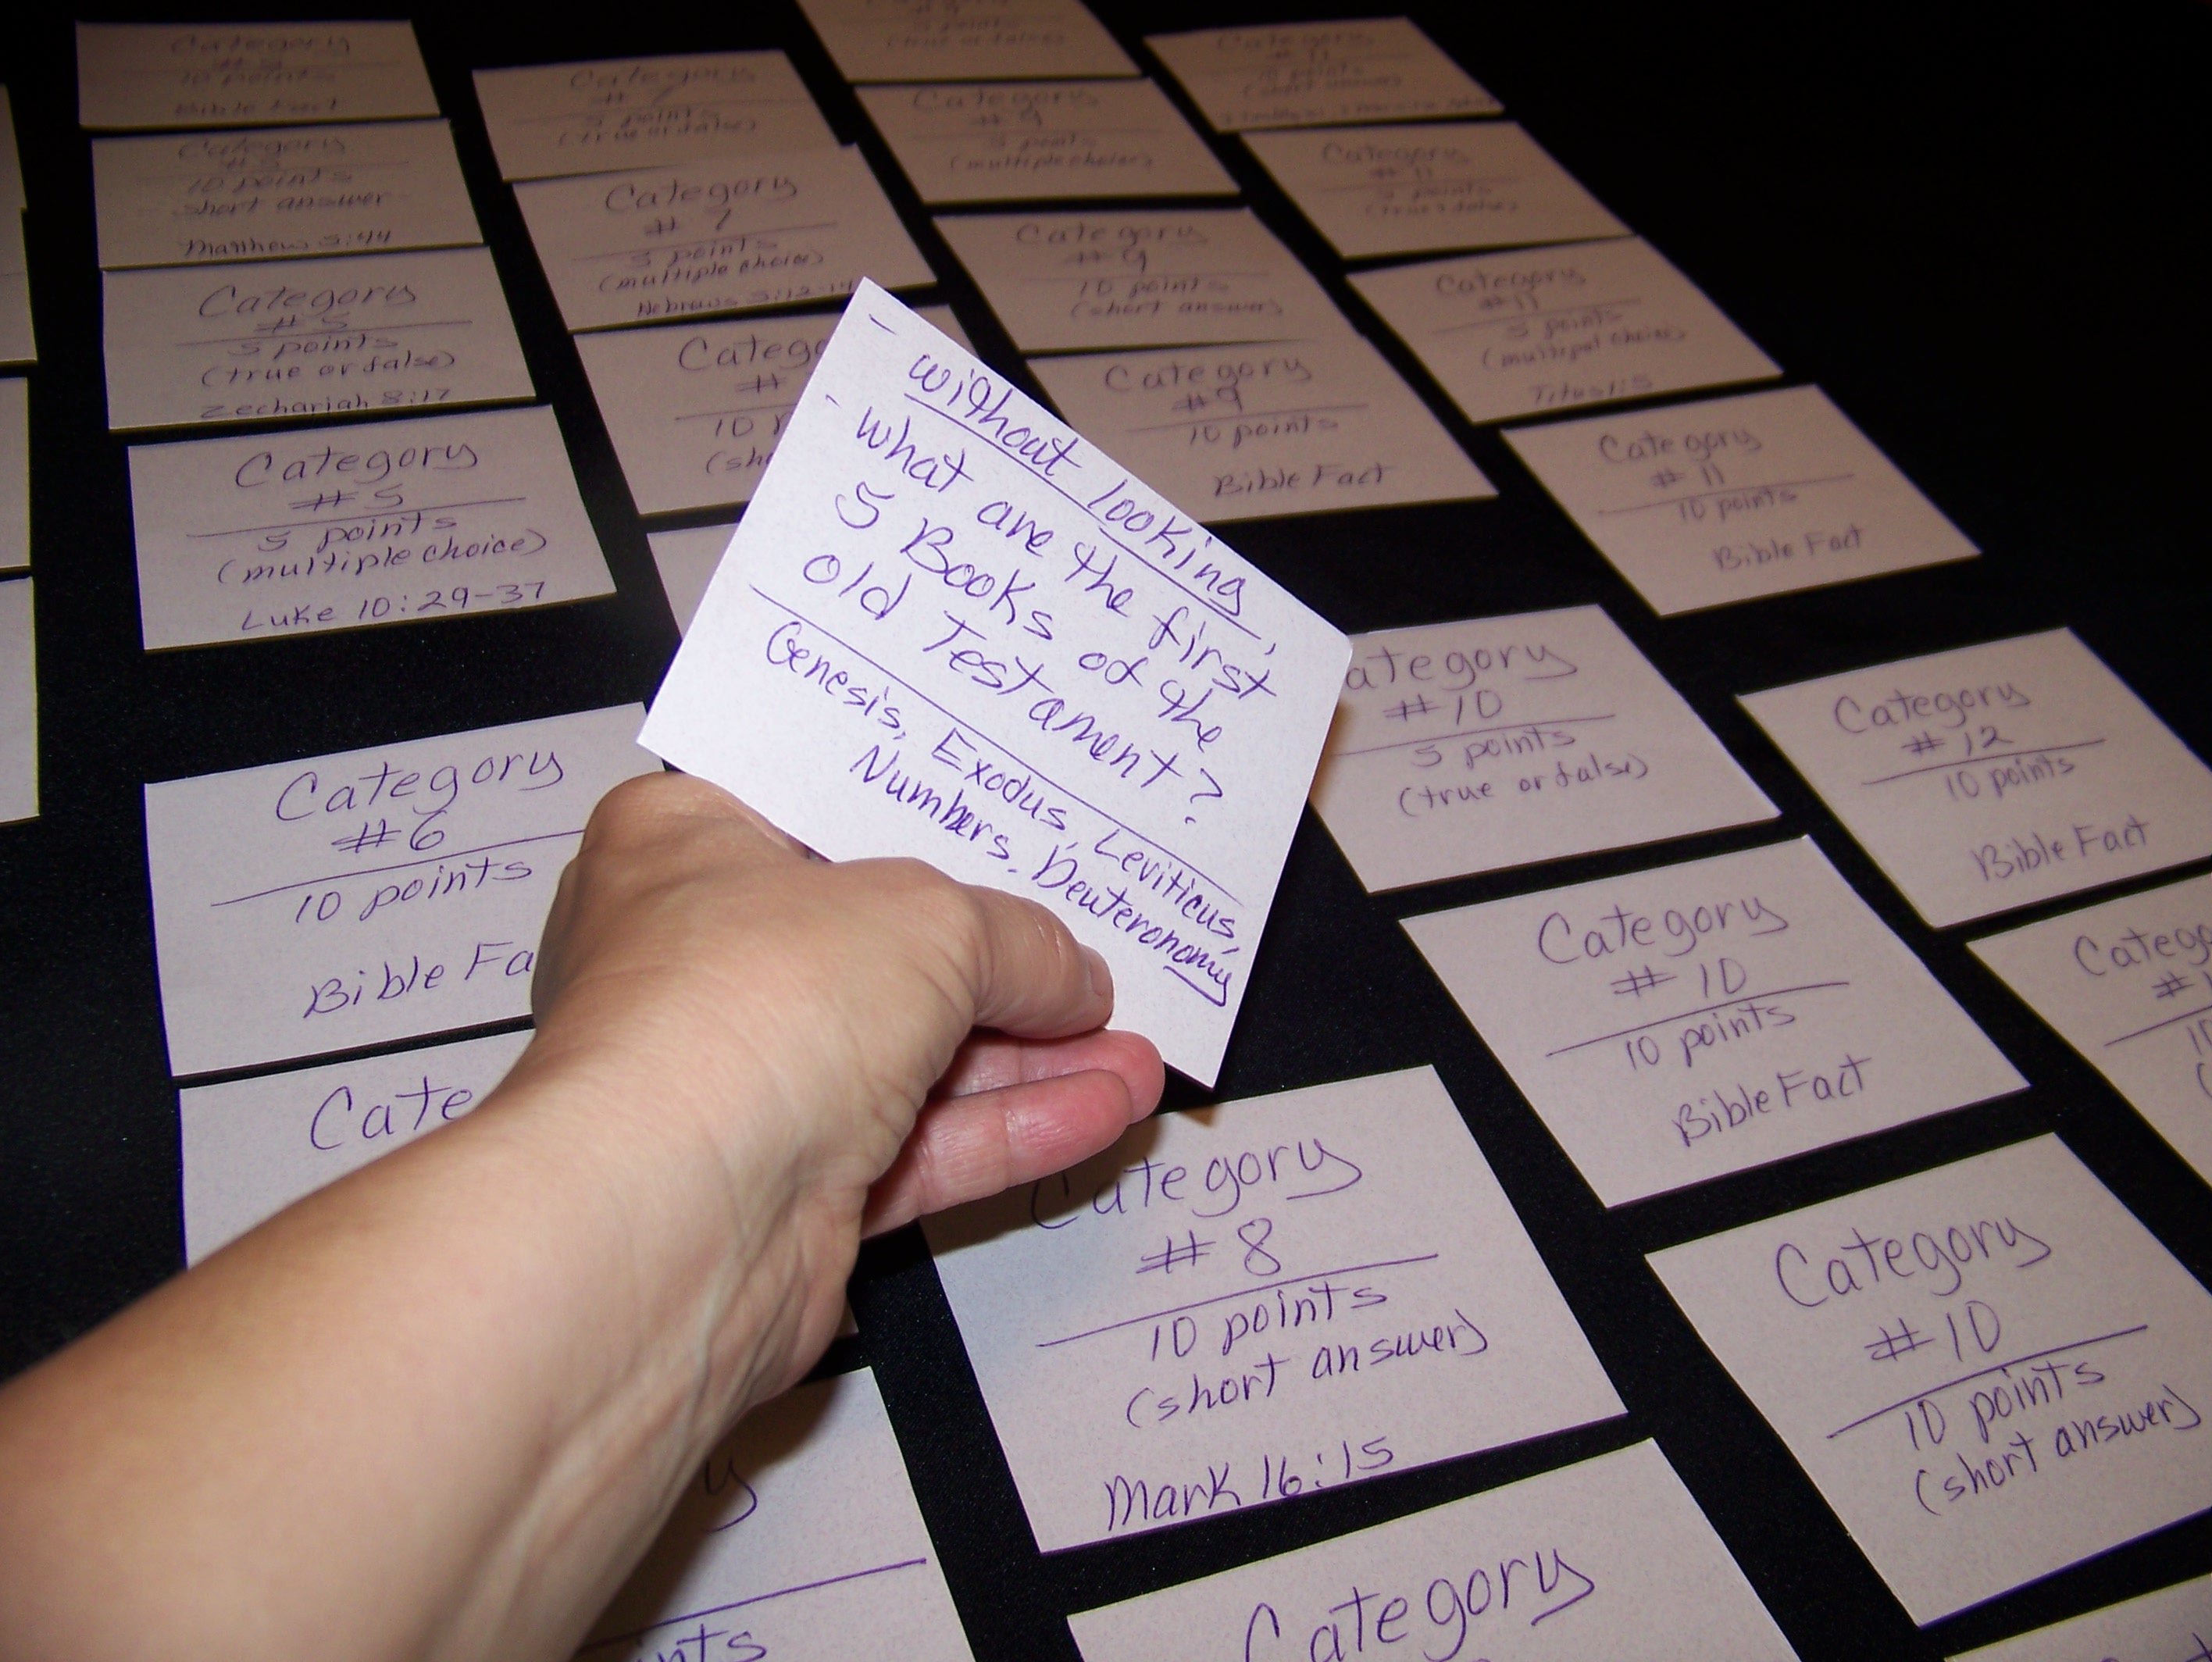 Category
10 points
Bible Fact
Category
#5
10 points
short answer
Matthew 5:44
Category
#5
5 points
(true or false)
Zechariah 8:17
Category
#5
5 points
(multiple choice)
Luke 10:29-37
Category
#6
10 points
Bible Fa
Cate
Category
# 7
5 points
(true or false)
Category
# 7
5 points
(multiple choice)
Hebrews 5:12-14
Catego
#
10 p
(sho
- without looking,
- what are the first
5 Books of the
old Testament?
Genesis, Exodus, Leviticus,
Numbers, Deuteronomy
y
nts
5 points
(true or false)
Category
#9
5 points
(multiple choice)
Category
#9
10 points
(short answer)
Category
#9
10 points
Bible Fact
ategory
#10
5 points
(true or false)
Category
#10
10 points
Bible Fact
Category
#8
10 points
(short answer)
Mark 16:15
Category
#10
10 points
(short answer)
Category
Category
#11
10 points
(short answer)
Category
#11
5 points
(true or false)
Category
#11
5 points
(multipel choice)
Titus 1:5
Category
#11
10 points
Bible Fact
Category
#12
10 points
Bible Fact
Catego
#1
1
(